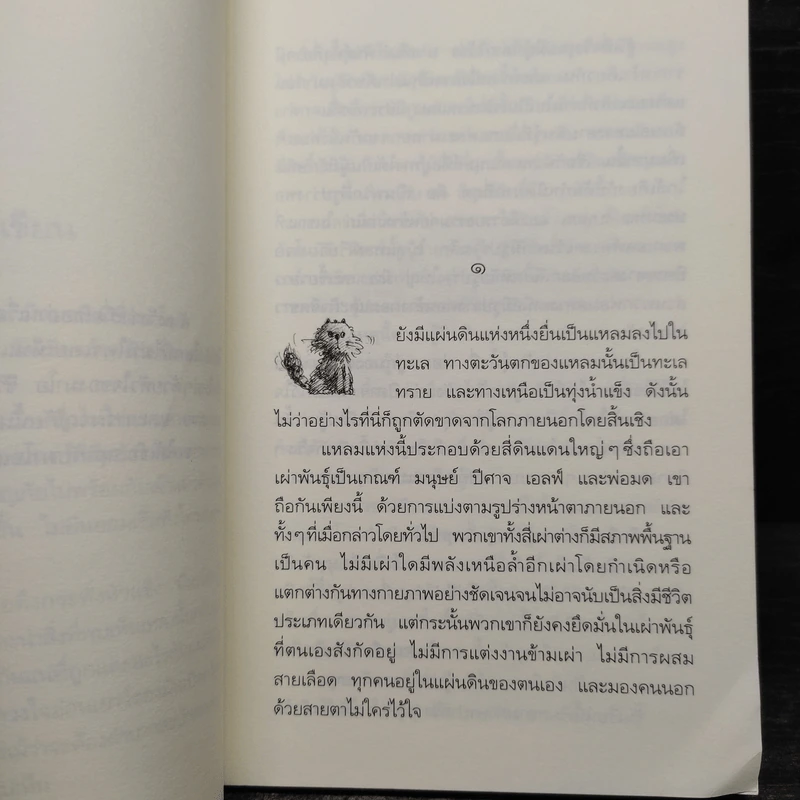 ๑
ยังมีแผ่นดินแห่งหนึ่งยื่นเป็นแหลมลงไปใน
ทะเล ทางตะวันตกของแหลมนั้นเป็นทะเล
ทราย และทางเหนือเป็นทุ่งน้ำแข็ง ดังนั้น
ไม่ว่าอย่างไรที่นี่ก็ถูกตัดขาดจากโลกภายนอกโดยสิ้นเชิง
แหลมแห่งนี้ประกอบด้วยสี่ดินแดนใหญ่ๆ ซึ่งถือเอา
เผ่าพันธุ์เป็นเกณฑ์ มนุษย์ ปีศาจ เอลฟ์ และพ่อมด เขา
ถือกันเพียงนี้ ด้วยการแบ่งตามรูปร่างหน้าตาภายนอก และ
ทั้งๆ ที่เมื่อกล่าวโดยทั่วไป พวกเขาทั้งสี่เผ่าต่างก็มีสภาพพื้นฐาน
เป็นคน ไม่มีเผ่าใดมีพลังเหนือล้ำอีกเผ่าโดยกำเนิดหรือ
แตกต่างกันทางกายภาพอย่างชัดเจนจนไม่อาจนับเป็นสิ่งมีชีวิต
ประเภทเดียวกัน แต่กระนั้นพวกเขาก็ยังคงยึดมั่นในเผ่าพันธุ์
ที่ตนเองสังกัดอยู่ ไม่มีการแต่งงานข้ามเผ่า ไม่มีการผสม
สายเลือด ทุกคนอยู่ในแผ่นดินของตนเอง และมองคนนอก
ด้วยสายตาไม่ใคร่ไว้ใจ